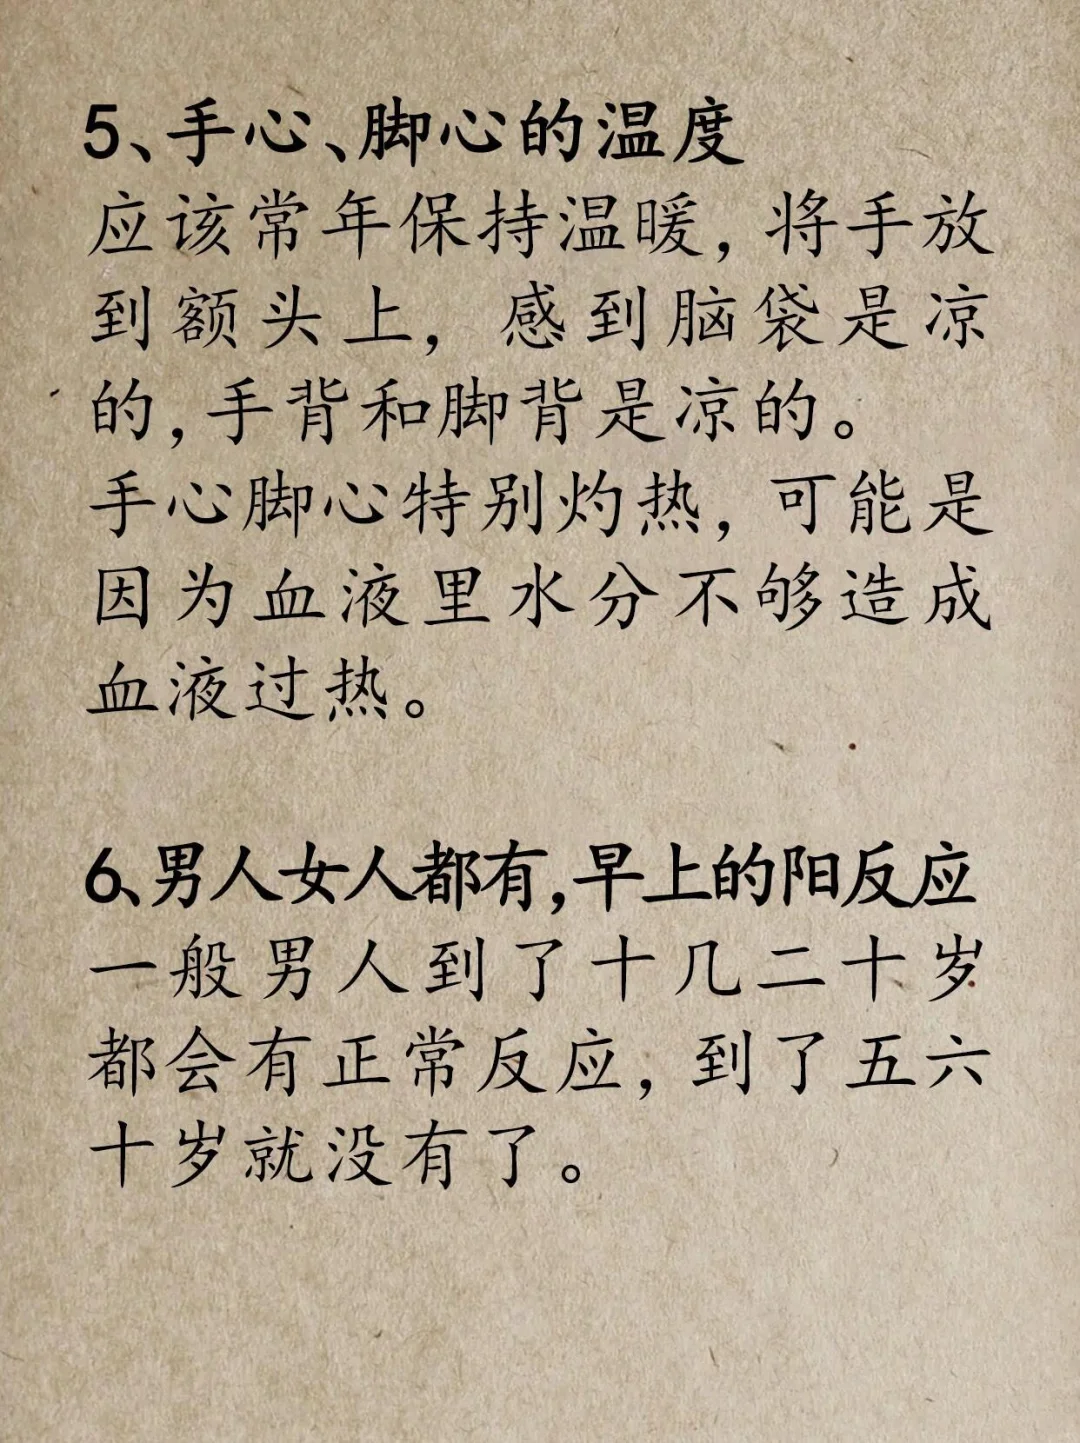 5、手心、脚心的温度
应该常年保持温暖,将手放
到额头上,感到脑袋是凉
的,手背和脚背是凉的。
手心脚心特别灼热,可能是
因为血液里水分不够造成
血液过热。
6、男人女人都有,早上的阳反应
一般男人到了十几二十岁
都会有正常反应,到了五六
十岁就没有了。